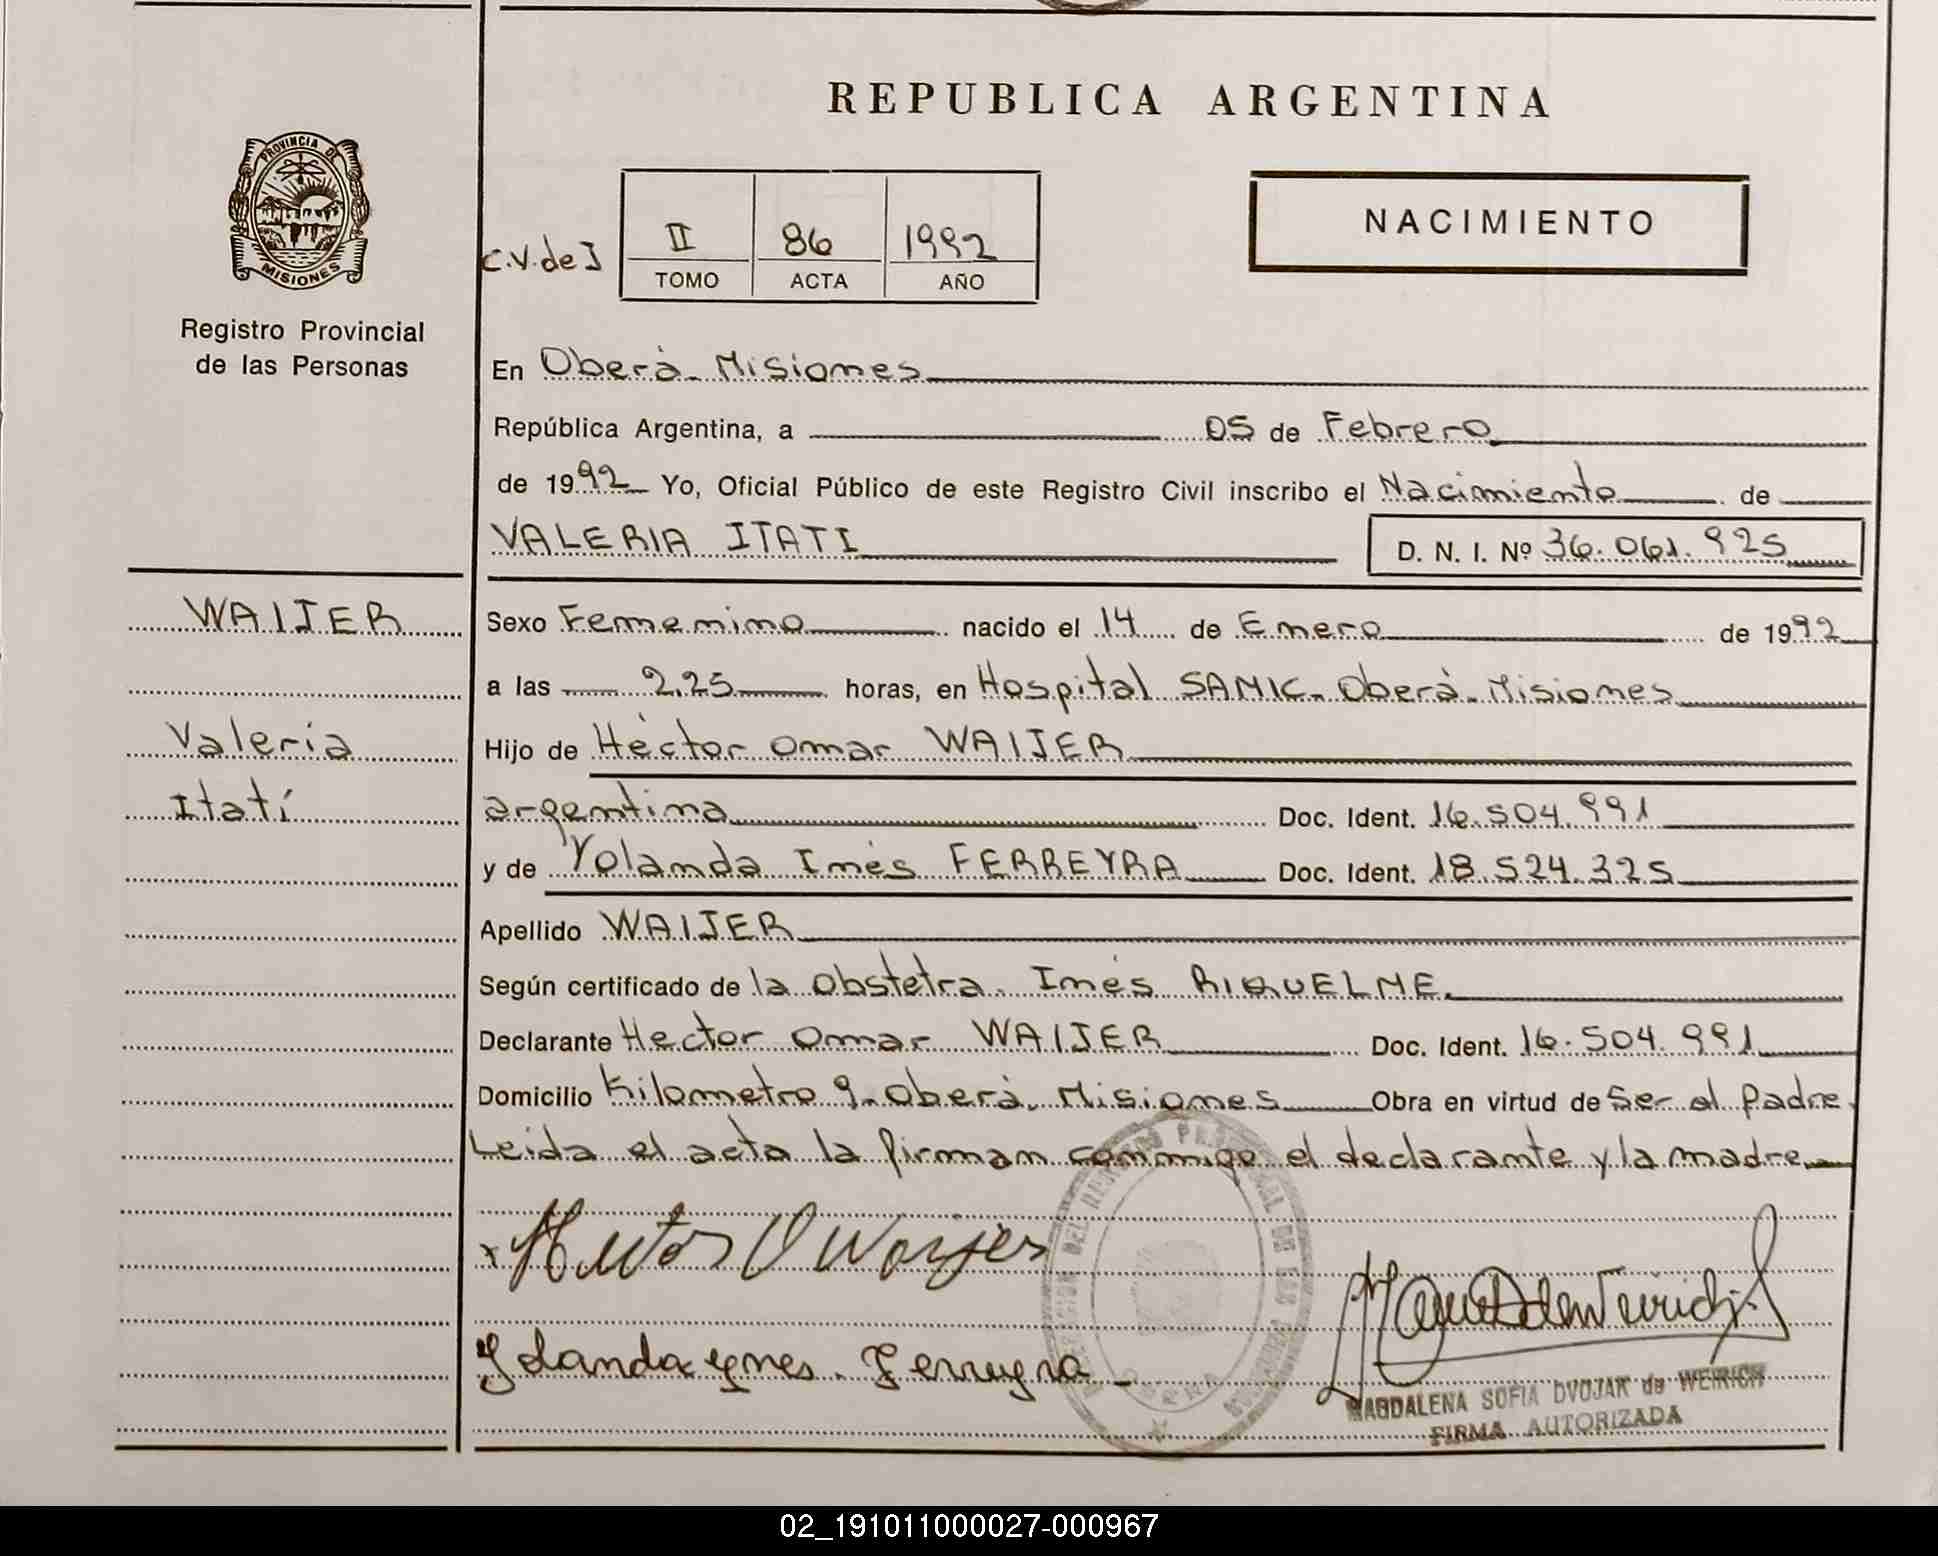 REPUBLICA ARGENTINA
PROVINCIA DE
MISIONES
Registro Provincial
de las Personas
C.V. de I
II 86 1992
TOMO ACTA AÑO
NACIMIENTO
En Oberá - Misiones
República Argentina, a 05 de Febrero
de 1992 Yo, Oficial Público de este Registro Civil inscribo el Nacimiento de
VALERIA ITATI D. N. I. Nº 36.061.925
WAIJER
Valeria
Itatí
Sexo Femenino nacido el 14 de Enero de 1992
a las 2,25 horas, en Hospital SAMIC - Oberá - Misiones
Hijo de Héctor Omar WAIJER
argentina Doc. Ident. 16.504.991
y de Yolanda Inés FERREYRA Doc. Ident. 18.524.325
Apellido WAIJER
Según certificado de la obstetra Inés RIQUELME.
Declarante Hector Omar WAIJER Doc. Ident. 16.504.991
Domicilio Kilometro 9 - Oberá, Misiones Obra en virtud de Ser el padre.
Leida el acta la firman conmigo el declarante y la madre
x Hector O Waijer
Yolanda Ynes. Ferreyra
MAGDALENA SOFIA DVOJAK de WEIRICH
FIRMA AUTORIZADA
02_191011000027-000967